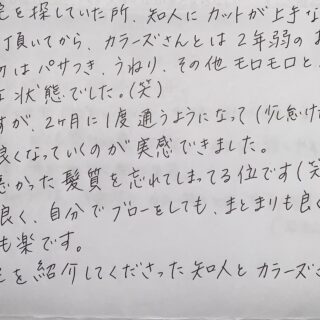 宅を探していた所、知人にカットが上手な
頂いてから、カラーズさんとは2年弱のお
のはパサつき、うねり、その他モロモロと
な状態でした。(笑)
すが、2ヶ月に1度通うようになって(少し怠けた
良くなっていくのが実感できました。
悪かった髪質を忘れてしまってる位です(笑
良く、自分でブローをしても、まとまりも良く
も楽です。
を紹介してくださった知人とカラーズさ